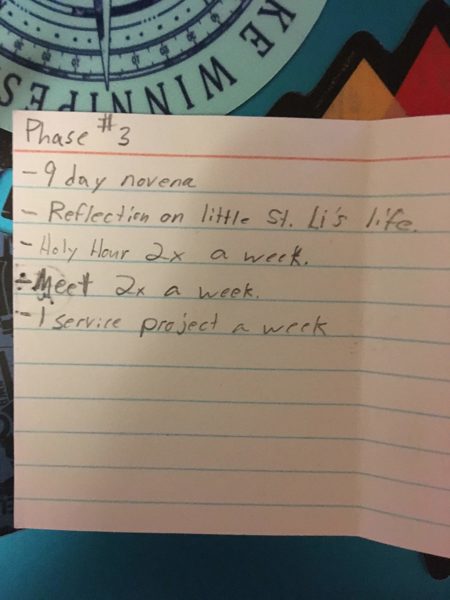 KE WINNIPES
Phase #3
- 9 day novena
- Reflection on little St. Li's life.
- Holy Hour 2x a week.
- Meet 2x a week.
- 1 service project a week